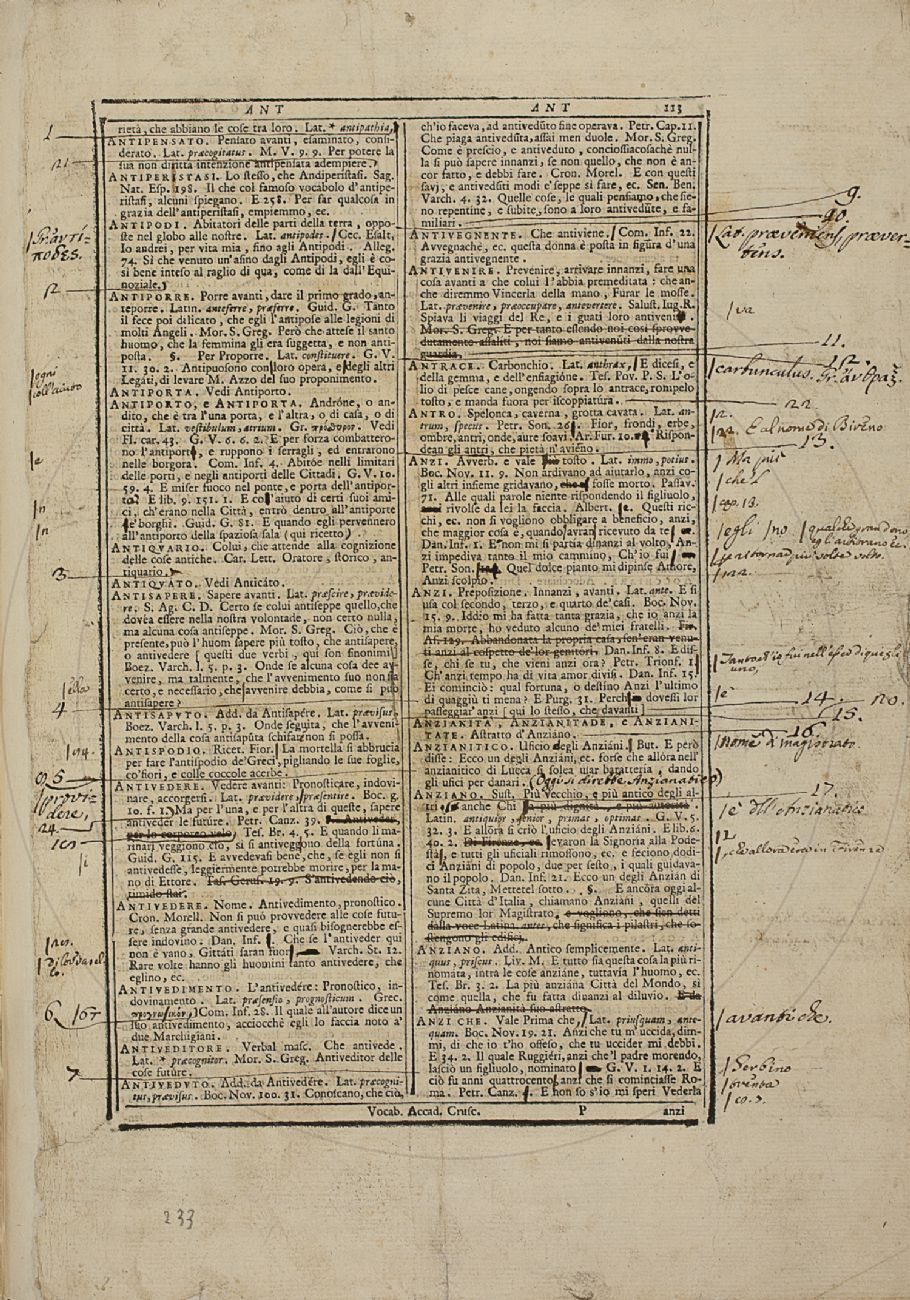 ANT
rietà, che abbiano le cose tra loro. Lat. * antipathia,
ANTIPENSATO. Pensato avanti, esaminato, consi-
derato. Lat. præcogitatus. M. V. 9. 9. Per potere la
sua non diritta intenzione antipensata adempiere.
ANTIPERISTASI. Lo stesso, che Andiperistasi. Sag.
Nat. Esp. 198. Il che col famoso vocabolo d'antipe-
ristasi, alcuni spiegano. E 258. Per far qualcosa in
grazia dell'antiperistasi, empiemmo, ec.
ANTIPODI. Abitatori delle parti della terra, oppo-
ste nel globo alle nostre. Lat. antipodes. Cec. Esalt.
Io andrei, per vita mia, fino agli Antipodi. Alleg.
74. Sì che venuto un'asino dagli Antipodi, egli è co-
sì bene inteso al raglio di qua, come di là dall'Equi-
noziale.
ANTIPORRE. Porre avanti, dare il primo grado, an-
teporre. Latin. anteferre, præferre. Guid. G. Tanto
il fece poi dilicato, che egli l'antipose alle legioni di
molti Angeli. Mor. S. Greg. Però che attese il santo
huomo, che la femmina gli era suggetta, e non anti-
posta. §. Per Proporre. Lat. constituere. G. V.
11. 30. 2. Antipuosono con loro opera, e degli altri
Legati, di levare M. Azzo del suo proponimento.
ANTIPORTA. Vedi Antiporto.
ANTIPORTO, E ANTIPORTA. Andróne, o an-
dito, che è tra l'una porta, e l'altra, o di casa, o di
città. Lat. vestibulum, atrium. Gr. πρόθυρον. Vedi
Fl. car. 43. G. V. 6. 6. 2. E per forza combattero-
no l'antiport, e ruppono i serragli, ed entrarono
nelle borgora. Com. Inf. 4. Abitóe nelli limitari
delle porti, e negli antiporti delle Cittadi. G. V. 10.
59. 4. E miser fuoco nel ponte, e porta dell'antipor-
to E lib. 9. 151. 1. E co l'aiuto di certi suoi ami-
ci, ch'erano nella Città, entrò dentro all'antiporte
e' borghi. Guid. G. 81. E quando egli pervennero
all'antiporto della spaziosa sala (qui ricetto)
ANTIQVARIO. Colui, che attende alla cognizione
delle cose antiche. Car. Lett. Oratore, storico, an-
tiquario.
ANTIQVATO. Vedi Anticáto.
ANTISAPERE. Sapere avanti. Lat. præscire, prævide-
re. S. Ag. C. D. Certo se colui antiseppe quello, che
doveà essere nella nostra volontade, non certo nulla,
ma alcuna cosa antiseppe. Mor. S. Greg. Ciò, che è
presente, può l'huom sapere più tosto, che antisapere,
o antivedere (questi due verbi, qui son sinonimi)
Boez. Varch. l. 5. p. 3. Onde se alcuna cosa dee av-
venire, ma talmente, che l'avvenimento suo non sia
certo, e necessario, che avvenire debbia, come si può
antisapere?
ANTISAPVTO. Add. da Antisapére. Lat. prævisus.
Boez. Varch. l. 5. p. 3. Onde seguita, che l'avveni-
mento della cosa antisaputa schifar non si possa.
ANTISPODIO. Ricet. Fior. La mortella si abbrucia
per fare l'antispodio de'Greci, pigliando le sue foglie,
co'fiori, e colle coccole acerbe.
ANTIVEDERE. Vedere avanti: Pronosticare, indovi-
nare, accorgersi. Lat. prævidere, præsentire. Boc. g.
10. f. 1. Ma per l'una, e per l'altra di queste, sapere
antiveder le future. Petr. Canz. 39. Antiveder,
per lo corporeo velo. Tes. Br. 4. 5. E quando li ma-
rinari veggiono ciò, sì si antiveggono della fortuna.
Guid. G. 115. E avvedevasi bene, che, se egli non si
antivedesse, leggiermente potrebbe morire, per la ma-
no di Ettore. Tas. Gerus. 19. 9. S'antivedendo ciò,
timido star.
ANTIVEDERE. Nome. Antivedimento, pronostico.
Cron. Morell. Non si può provvedere alle cose futu-
re, senza grande antivedere, e quasi bisognerebbe es-
sere indovino. Dan. Inf. Che se l'antiveder qui
non è vano, Gittati saran fuor Varch. St. 12.
Rare volte hanno gli huomini tanto antivedere, che
eglino, ec.
ANTIVEDIMENTO. L'antivedére: Pronostico, in-
dovinamento. Lat. præsensio, prognosticum. Grec.
Com. Inf. 28. Il quale all'autore dice un
suo antivedimento, acciocchè egli lo faccia noto a'
due Marchigiani.
ANTIVEDITORE. Verbal masc. Che antivede.
Lat. * præcognitor. Mor. S. Greg. Antiveditor delle
cose future.
ANTIVEDVTO. Add. da Antivedére. Lat. præcogni-
tus, prævisus. Boc. Nov. 100. 31. Conoscano, che ciò,
ANT 113
ch'io faceva, ad antiveduto fine operava. Petr. Cap. 11.
Che piaga antiveduta, assai men duole. Mor. S. Greg.
Come è prescio, e antiveduto, conciossiacosachè nul-
la si può sapere innanzi, se non quello, che non è an-
cor fatto, e debbi fare. Cron. Morel. E con questi
savj, e antivediti modi e'seppe sì fare, ec. Sen. Ben.
Varch. 4. 32. Quelle cose, le quali pensiamo, che sie-
no repentine, e subite, sono a loro antivedute, e fa-
miliari.
ANTIVEGNENTE. Che antiviene. Com. Inf. 22.
Avvegnachè, ec. questa donna è posta in figura d'una
grazia antivegnente.
ANTIVENIRE. Prevenire, arrivare innanzi, fare una
cosa avanti a che colui l'abbia premeditata: che an-
che diremmo Vincerla della mano, Furar le mosse.
Lat. prævenire, præoccupare, antevertere. Salust. Iug. R.
Spiava li viaggi del Re, e i guati loro antiveni
Mor. S. Greg. E per tanto essendo noi così sprovve-
dutamente assaliti, noi siamo antivenuti dalla nostra
guardia.
ANTRACE. Carbonchio. Lat. anthrax, E dicesi, e
della gemma, e dell'enfiagione. Tes. Pov. P. S. L'o-
lio di pesce cane, ongendo sopra lo antrace, rompelo
tosto, e manda fuora per iscoppiatura.
ANTRO. Spelonca, caverna, grotta cavata. Lat. an-
trum, specus. Petr. Son. 26. Fior, frondi, erbe,
ombre, antri, onde, aure soavi. Ar. Fur. 10. Rispon-
dean gli antri, che pietà n'avieno.
ANZI. Avverb. e vale tosto. Lat. immo, potius.
Boc. Nov. 11. 9. Non ardivano ad aiutarlo, anzi co-
gli altri insieme gridavano, che fosse morto. Passav.
71. Alle quali parole niente rispondendo il figliuolo,
rivolse da lei la faccia. Albert. Questi ric-
chi, ec. non si vogliono obbligare a beneficio, anzi,
che maggior cosa è, quando avrai ricevuto da te
Dan. Inf. 1. E non mi si partia dinanzi al volto, An-
zi impediva tanto il mio cammino, Ch'io fui
Petr. Son. Quel dolce pianto mi dipinse Amore,
Anzi scolpìo.
ANZI. Preposizione. Innanzi, avanti. Lat. ante. E si
usa col secondo, terzo, e quarto de'casi. Boc. Nov.
15. 9. Iddio mi ha fatta tanta grazia, che io anzi la
mia morte, ho veduto alcuno de'miei fratelli.
Abbandonata la propria casa, sen'eran venu-
ti anzi al cospetto de'lor genitori. Dan. Inf. 8. E dis-
se, chi se tu, che vieni anzi ora? Petr. Trionf.
Ch'anzi tempo ha di vita amor divisi. Dan. Inf. 15.
Ei cominciò: qual fortuna, o destino Anzi l'ultimo
dì quaggiù ti mena? E Purg. 31. Perch dovessi lor
passeggiar anzi (qui lo stesso, che davanti)
ANZIANITÀ, ANZIANITADE, E ANZIANI-
TATE. Astratto d'Anziáno.
ANZIANITICO. Uficio degli Anziáni. But. E però
disse: Ecco un degli Anziáni, ec. forse che allora nell'
anzianitico di Lucca si solea usar baratteria, dando
gli ufici per danari. (Oggi si direbbe Anzianatico)
ANZIANO. Sust. Più Vecchio, e più antico degli al-
tri anche Chi
Latin. antiquior, senior, primas, optimas. G. V. 5.
32. 3. E allora si criò l'uficio degli Anziáni. E lib. 6.
40. 2. Di Firenze, ec. levaron la Signoria alla Pode-
stà, e tutti gli uficiali rimossono, ec. e feciono dodi-
ci Anziáni di popolo, due per sesto, i quali guidava-
no il popolo. Dan. Inf. 21. Ecco un degli Anziàn di
Santa Zita, Mettetel sotto. §. E ancóra oggi al-
cune Città d'Italia, chiamano Anziáni, quelli del
Supremo lor Magistrato, e vogliono, che sien detti
dalla voce Latina. antes, che significa i pilastri, che so-
stengono gli edificj.
ANZIANO. Add. Antico semplicemente. Lat. anti-
quus, priscus. Liv. M. E tutto sia questa cosa la più ri-
nomata, intra le cose anziáne, tuttavia l'huomo, ec.
Tes. Br. 3. 2. La più anziána Città del Mondo, si
come quella, che fu fatta dinanzi al diluvio. E da
Anziáno Anzianità suo astratto.
ANZI CHE. Vale Prima che, Lat. priusquam, ante-
quam. Boc. Nov. 19. 21. Anzi che tu m'uccida, dim-
mi, di che io t'ho offeso, che tu uccider mi debbi.
E 34. 2. Il quale Ruggiéri, anzi che'l padre morendo,
lasciò un figliuolo, nominato G. V. 1. 14. 2. E
ciò fu anni quattrocento, anzi che si cominciasse Ro-
ma. Petr. Canz. E non so s'io mi speri Vederla
Vocab. Accad. Crusc. P anzi
1
21
Gr. ἀντί-
ποδες.
2
ogni
coll'aiuto
e
n
n
3
ello
4
94.
5
provi-
dere,
24.
6
7
9.
10.
Lat. præveniens, præver-
tens.
va
11.
12.
carbunculus. Gr. ἄνθραξ
22.
2.
22. E al nome di Bireno
13.
Ma più
che
cap. 13.
egli no
14.
15.
16.
no.
e
Nome di magistrato.
17.
è dell'Anzianatico
12
che allora era in Firenze
avanti che.
Gerbino
co. 7.
233